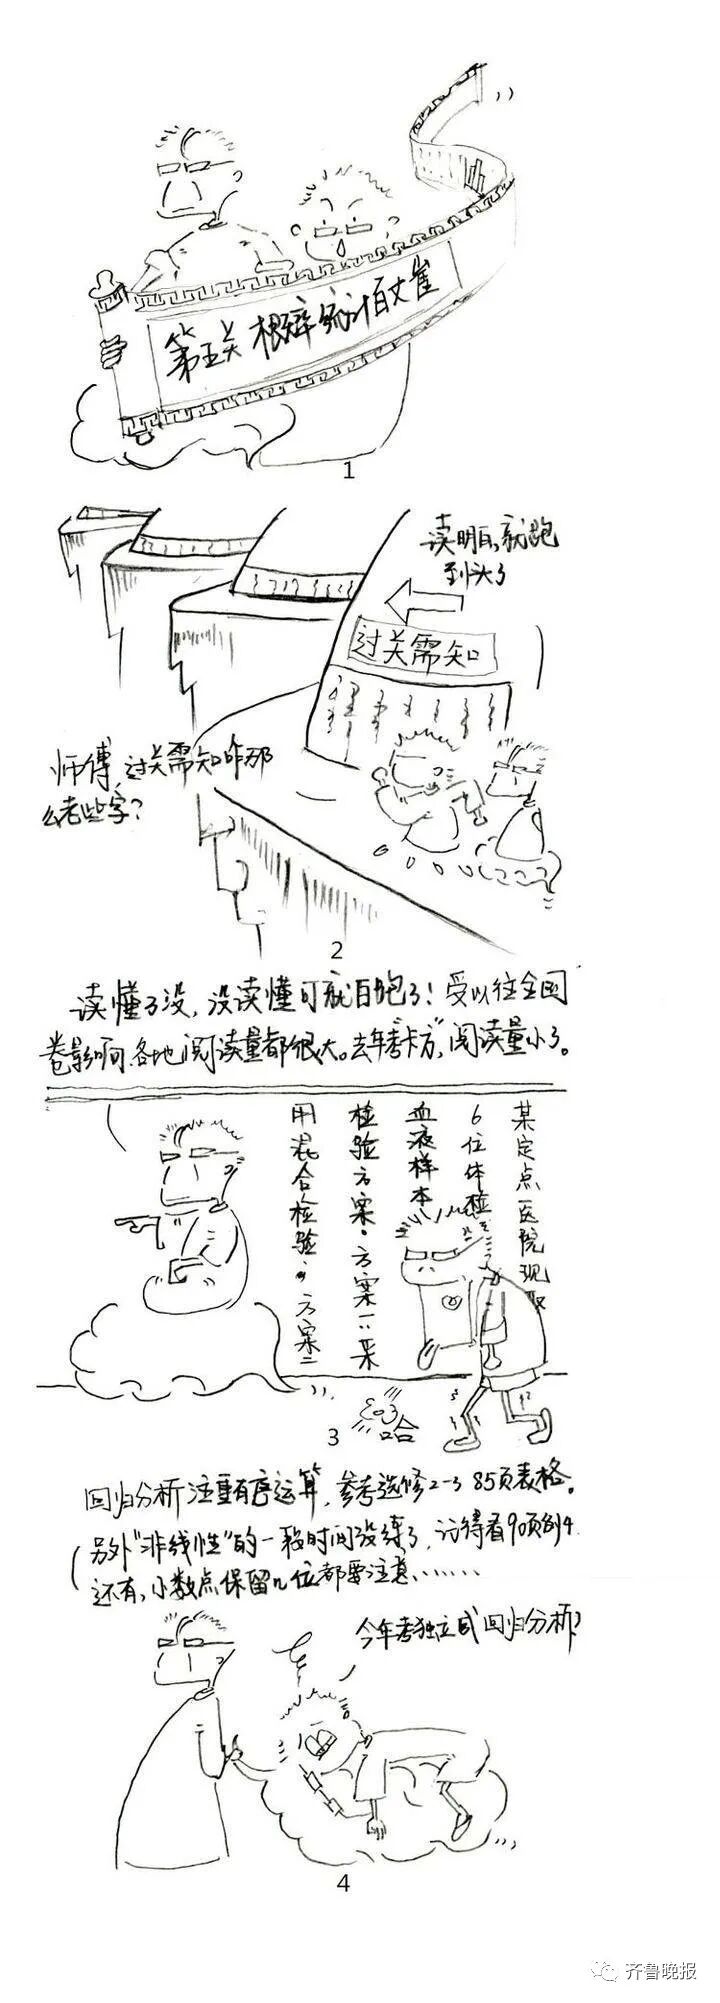 第五关 概率统计百丈崖
1
读明白,就跑
到头了
过关需知
师傅,过关需知咋那
么老些字?
2
读懂了没,没读懂可就白跑了!受以往全国
卷影响,各地阅读量都很大。去年考"卡方",阅读量小了。
某定点医院现取
6位体检
血液样本
检验方案:方案一:采
用混合检验;方案二
哈
3
回归分析注重有序运算,参考选修2-3 85页表格。
另外"非线性"的一段时间没练了,记得看90页例4
还有,小数点保留几位都要注意……
今年考独立或回归分析?
4
齐鲁晚报